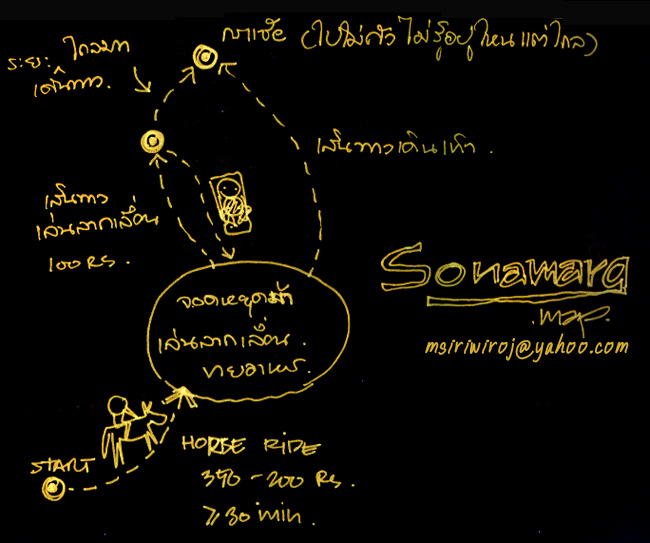 ระยะ ไกลมาก
เดินทาง
(ไปไม่ถึง ไม่รู้อยู่ไหนแต่ไกล)
เส้นทางเดินเท้า.
เส้นทาง
เล่นลากเลื่อน
100 RS.
Sonamarg
map.
msiriwiroj@yahoo.com
จอดหยุดม้า
เล่นลากเลื่อน.
ขายอาหาร.
START
HORSE RIDE
350 - 200 RS.
≥ 30 min.